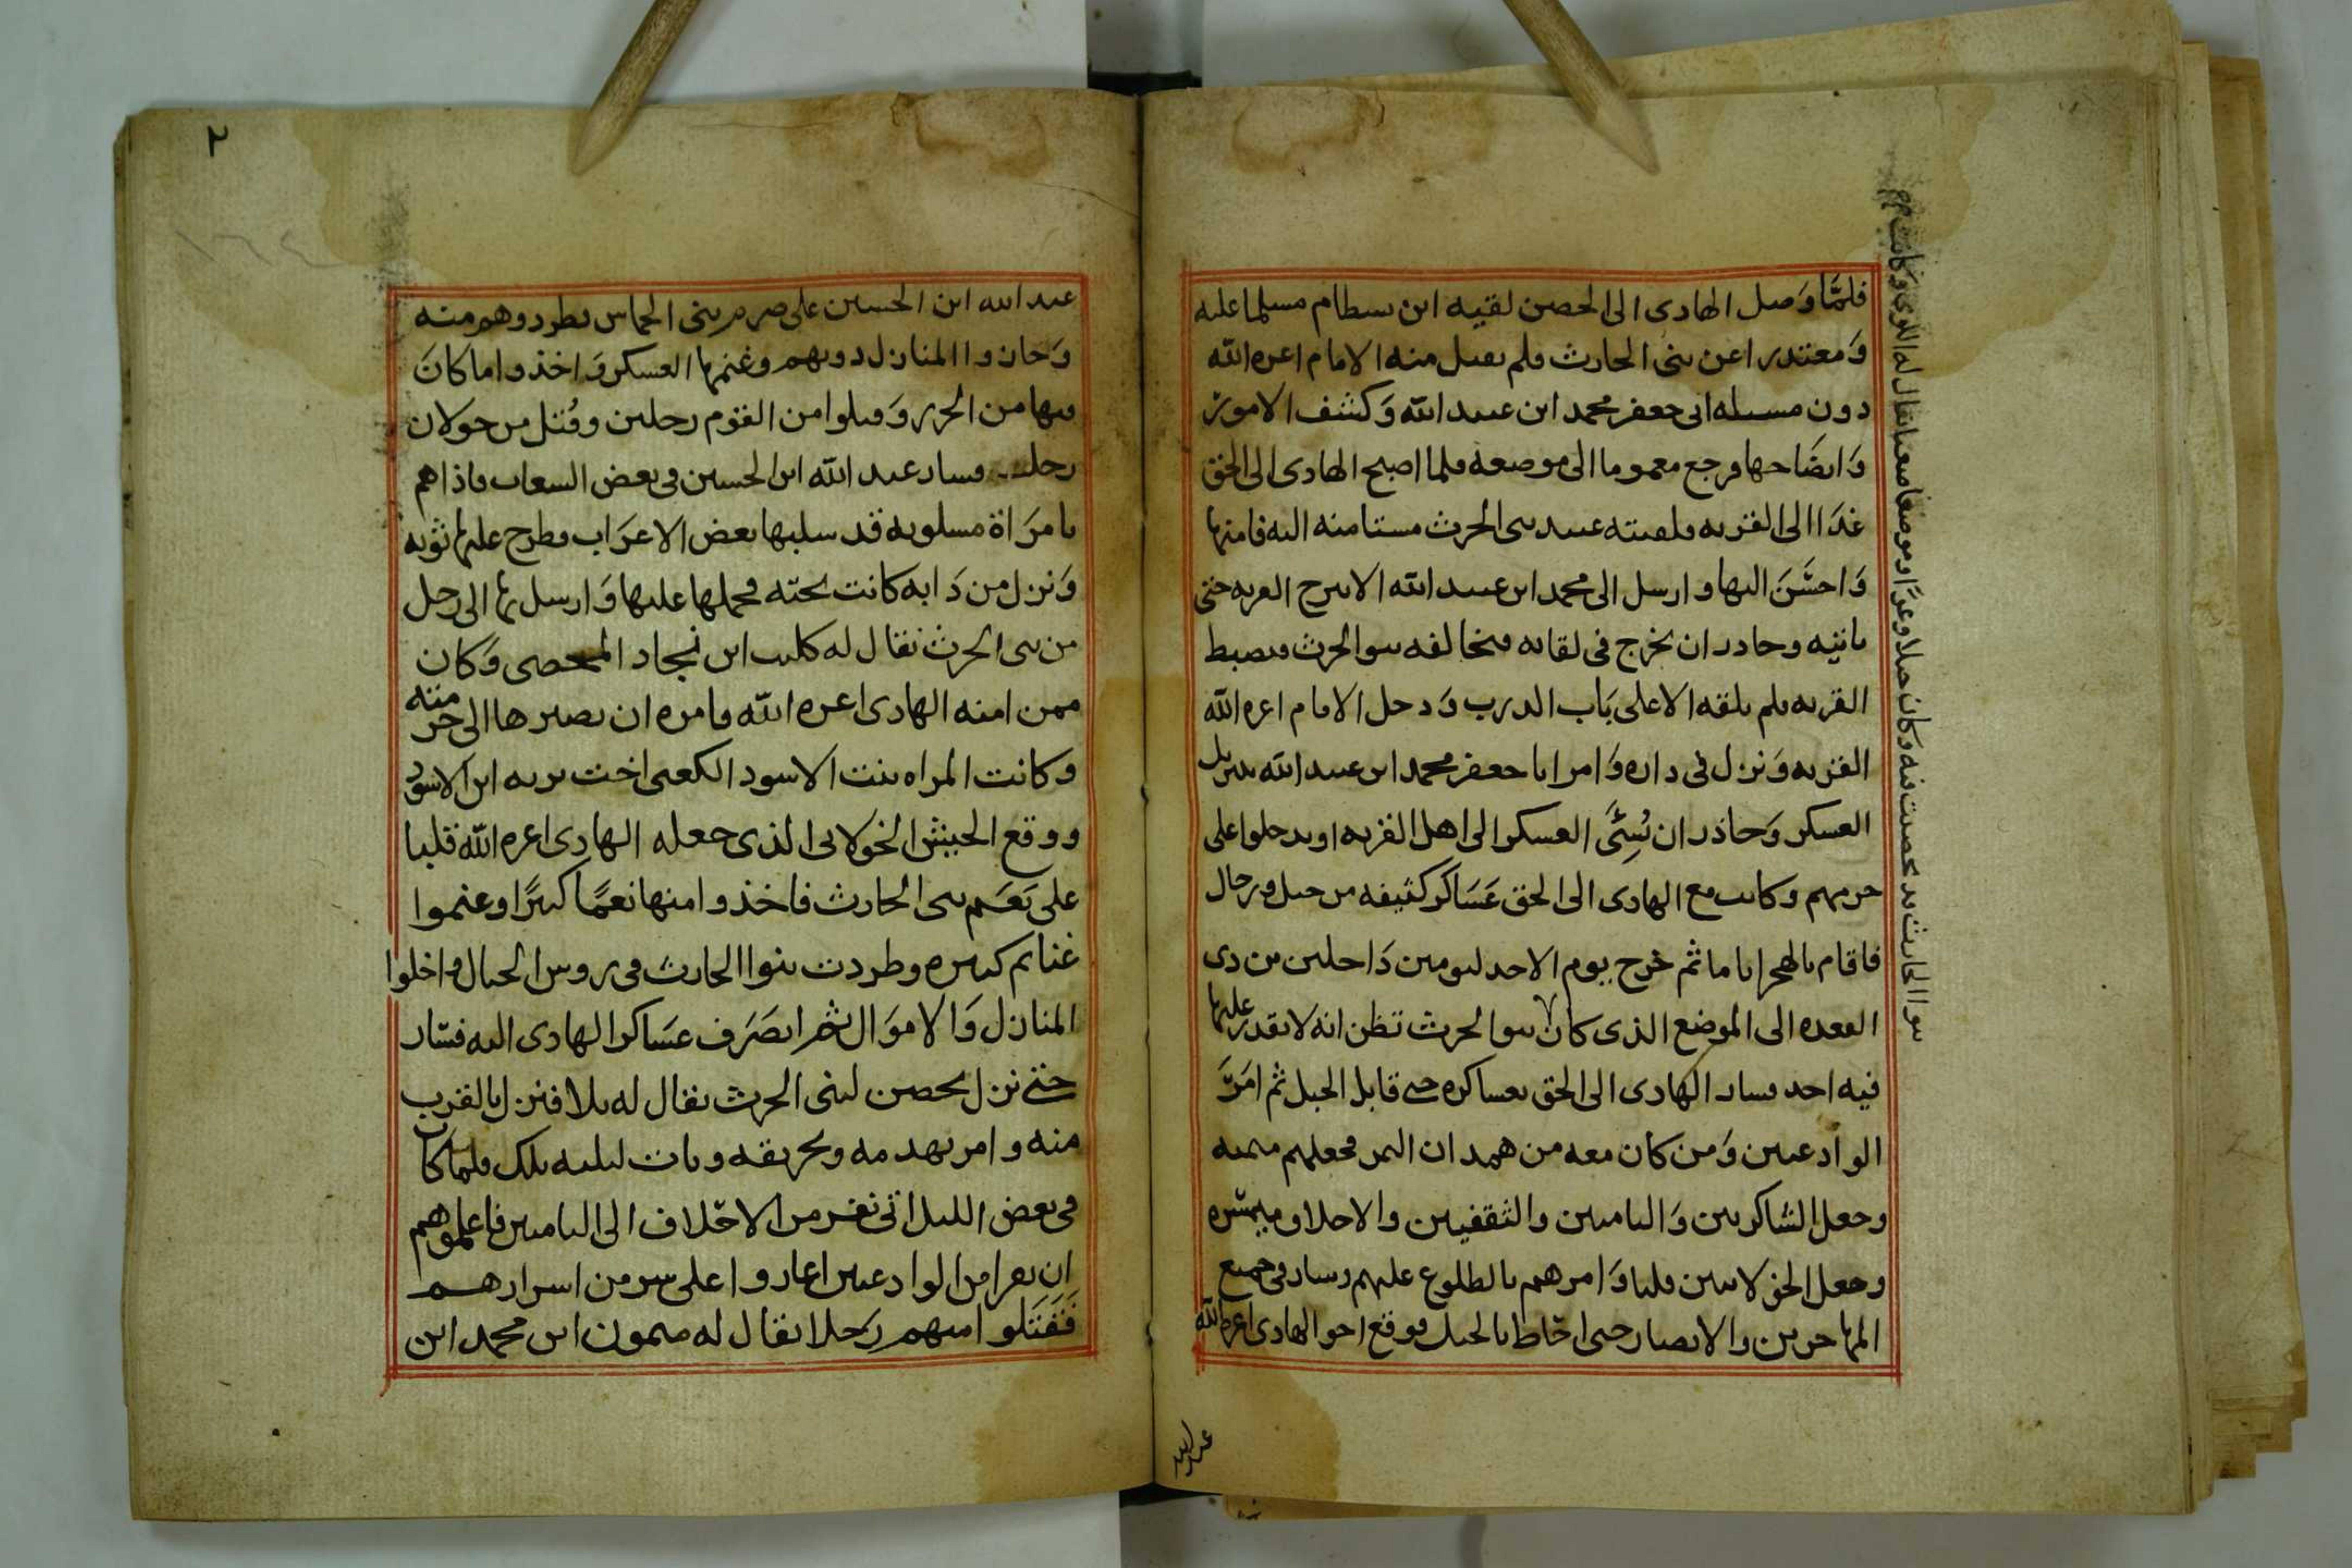 فلمّا وَصل الهادى الى الحصن لقيه ابن بسطام مسلما عليه
وَمعتذرا عن بنى الحارث فلم يقبل منه الامام اعزه الله
دون مسيله ابى جعفر محمد ابن عبيد الله وَكشف الامور
وَايضَاحها فرجع مغموما الى موضعه فلما اصبح الهادى الى الحق
غدَا الى القريه فلقيته عبيد بنى الحرث مستامنه اليه فامنها
وَاحسَنَ اليها وارسل الى محمد ابن عبيد الله الا يبرح القريه حتى
ياتيه وحاذر ان يخرج فى لقايه فيخالفه بنوا الحرث فيضبط
القريه فلم يلقه الا على بَاب الدرب وَدخل الامام اعزه الله
القريه وَنزل فى داره وَامر ابا جعفر محمد ابن عبيد الله بتنزيل
العسكر وَحاذر ان يُسِئَ العسكر الى اهل القريه او يدخلوا على
حرمهم وكانت مع الهادى الى الحق عَسَاكر كثيفه من خيل ورجال
فاقام بالهجر اياما ثم خرج يوم الاحد ليومين دَاخلين من ذى
القعده الى الموضع الذى كان بنوا الحرث تظن انه لا يقدر عليها
فيه احد فسار الهادى الى الحق بعساكره حتى قابل الجبل ثم امَرَ
الوادعيين وَمن كان معه من همدان اليمن فجعلهم ميمنه
وجعل الشاكريين وَاليامين والثقفيين والاحلاف ميسره
وجعل الخولانيين قلبا وَامرهم بالطلوع عليهم وسار فى جميع
المهاجرين والانصار حتى احَاط بالجبل فوقع اخو الهادى اعزه الله
بنوا الحارث قد تحصنت فيه وكان جبلا وعرًا وموضعا صعبا يقال له اللوى وكانت
عبدالله
٢
عبد الله ابن الحسين على صرم بنى الحماس فطردوهم منه
وَحازوا المنازل دونهم وغنمها العسكر وَاخذوا ما كانَ
فيها من الحرر وَقتلوا من القوم رجلين وقُتل من خولان
رجل وسار عبد الله ابن الحسين فى بعض الشعاب فاذا هم
بامرَاة مسلوبه قد سلبها بعض الاعرَاب فطرح عليها ثوبه
وَنزل من دَابه كانت تحته فحملها عليها وَارسل بها الى رجل
من بنى الحرث يقال له كليب ابن نجاد المحصى وَكان
ممن امنه الهادى اعزه الله وامره ان يصيرها الى حرمته
وكانت المراه بنت الاسود الكعبى اخت بريه ابن الاسود
ووقع الجيش الخولانى الذى جعله الهادى اعزه الله قلبا
على نَعَم بنى الحارث فاخذوا منها نعمًا كثيرًا وغنموا
غنايم كثيره وطردت بنوا الحارث فى روس الجبال واخلوا
المنازل وَالاموَال ثم انصَرَف عسَاكر الهادى اليه فسَار
حتى نزل بحصن لبنى الحرث يقال له بلا فنزل بالقرب
منه وامر بهدمه وتحريقه وبات ليلته تلك فلما كان
فى بعض الليل اتى نفر من الاحلاف الى اليامين فاعلموهم
ان نفرا من الوادعيين اغاروا على سر من اسرارهم
فَقَتَلوا منهم رَجلا يقال له ميمون ابن محمد ابن